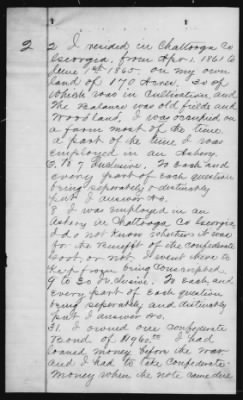 2
2 I resided in Chattooga Co
Georgia, from Apr. 1. 1861 to
June 1st 1865. on my own
land of 170 Acres, 50 of
which was in Cultivation, and
the balance was old fields and
Woodland, I was occupied on
a farm most of the time
a part of the time I was
employed in an Ashery.
3. to 7 Inclusive. To each and
every part of each question
being seperately & distinctly
put I answer No.
8 I was employed in an
Ashery in Chattooga Co Georgia
I do not know whether it was
for the benefit of the Confederate
Govt or not. I went there to
Keep from being Conscripted
9 to 30 Inclusive. To each and
every part of each question
being seperately and distinctly
put I answer No.
31. I owned one Confederate
Bond of $1960.00 I had
loaned money before the war
and I had to take Confederate
Money when the note came due